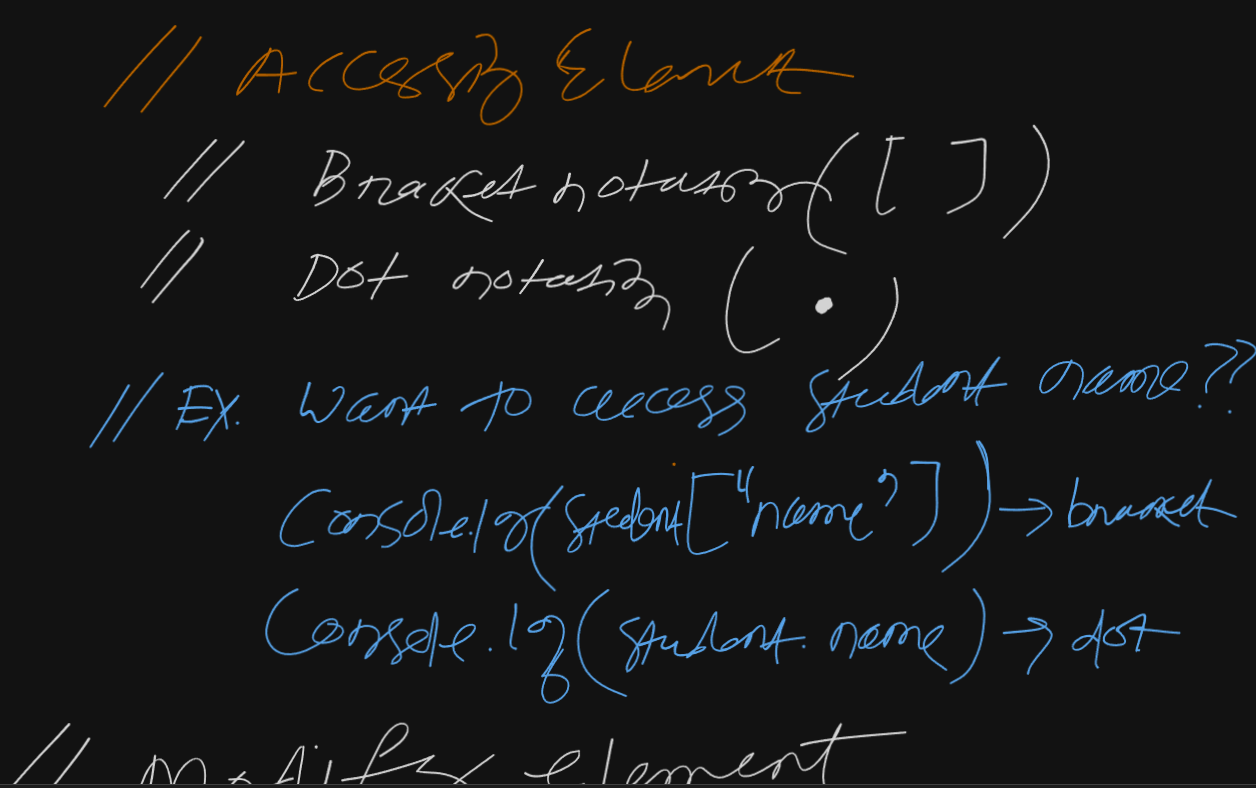 // Accessing Element
// Bracket notation ([ ])
// Dot notation (.)
// Ex. Want to access student name??
Console.log(student["name"]) → bracket
Console.log(student.name) → dot
// Modify element